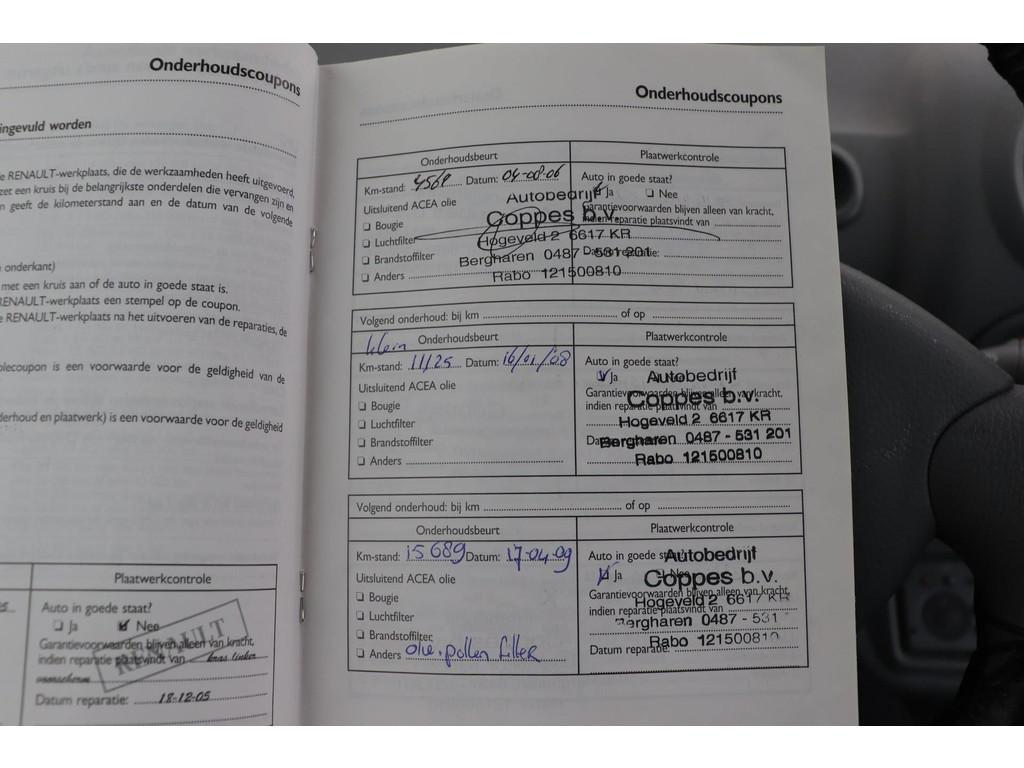 Onderhoudscoupons
ingevuld worden
e RENAULT-werkplaats, die de werkzaamheden heeft uitgevoerd,
zet een kruis bij de belangrijkste onderdelen die vervangen zijn en
n geeft de kilometerstand aan en de datum van de volgende
onderkant)
met een kruis aan of de auto in goede staat is.
RENAULT-werkplaats een stempel op de coupon.
e RENAULT-werkplaats na het uitvoeren van de reparaties, de
olecoupon is een voorwaarde voor de geldigheid van de
derhoud en plaatwerk) is een voorwaarde voor de geldigheid
Plaatwerkcontrole
Auto in goede staat?
Ja Nee
Garantievoorwaarden blijven alleen van kracht,
indien reparatie plaatsvindt van kras linker
voorscherm
RENAULT
Datum reparatie: 18-12-05
Onderhoudscoupons
Onderhoudsbeurt Plaatwerkcontrole
Km-stand: 4569 Datum: 04-08-06 Auto in goede staat?
Ja Nee
Uitsluitend ACEA olie
Garantievoorwaarden blijven alleen van kracht,
indien reparatie plaatsvindt van
Bougie
Luchtfilter
Brandstoffilter
Datum reparatie:
Anders
Autobedrijf
Coppes b.v.
Hogeveld 2 6617 KR
Bergharen 0487 - 531 201
Rabo 121500810
Volgend onderhoud: bij km of op
klein Onderhoudsbeurt Plaatwerkcontrole
Km-stand: 11125 Datum: 16/01/'08 Auto in goede staat?
Ja
Uitsluitend ACEA olie
Garantievoorwaarden blijven alleen van kracht,
indien reparatie plaatsvindt van
Bougie
Luchtfilter
Brandstoffilter
Anders
Autobedrijf
Coppes b.v.
Hogeveld 2 6617 KR
Bergharen 0487 - 531 201
Rabo 121500810
Volgend onderhoud: bij km of op
Onderhoudsbeurt Plaatwerkcontrole
Km-stand: 15689 Datum: 17-04-09 Auto in goede staat?
Ja Nee
Uitsluitend ACEA olie
Garantievoorwaarden blijven alleen van kracht,
indien reparatie plaatsvindt van
Bougie
Luchtfilter
Brandstoffilter
Anders olie, pollen filter
Datum reparatie:
Autobedrijf
Coppes b.v.
Hogeveld 2 6617 KR
Bergharen 0487 - 531
Rabo 121500810